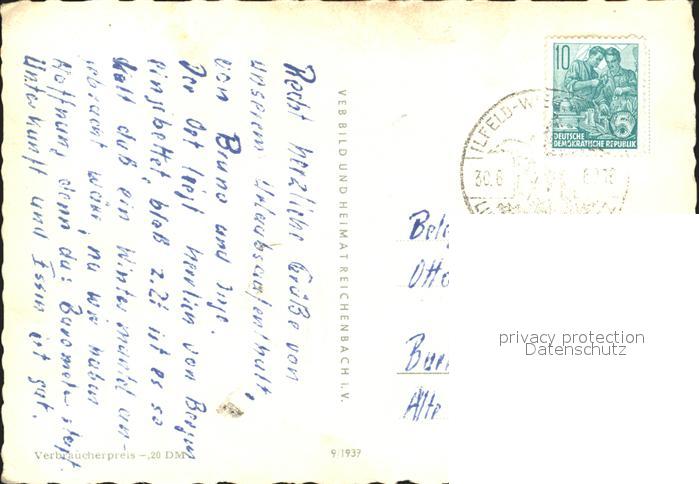 Recht herzliche Grüße von
unserem Urlaubsaufenthalt.
von Bruno und Inge.
Der Ort liegt herrlich von Bergen
eingebettet, bloß z.Zt ist es so
kalt daß ein Wintermantel an-
gebracht wäre, na wir haben
Hoffnung denn das Barometer steigt.
Unterkunft und Essen ist gut.
VEB BILD UND HEIMAT REICHENBACH i. V.
Verbraucherpreis -,20 DM
9/1937
10
DEUTSCHE
DEMOKRATISCHE REPUBLIK
5
ILFELD-W
30.6
Otto
Alte
privacy protection
Datenschutz